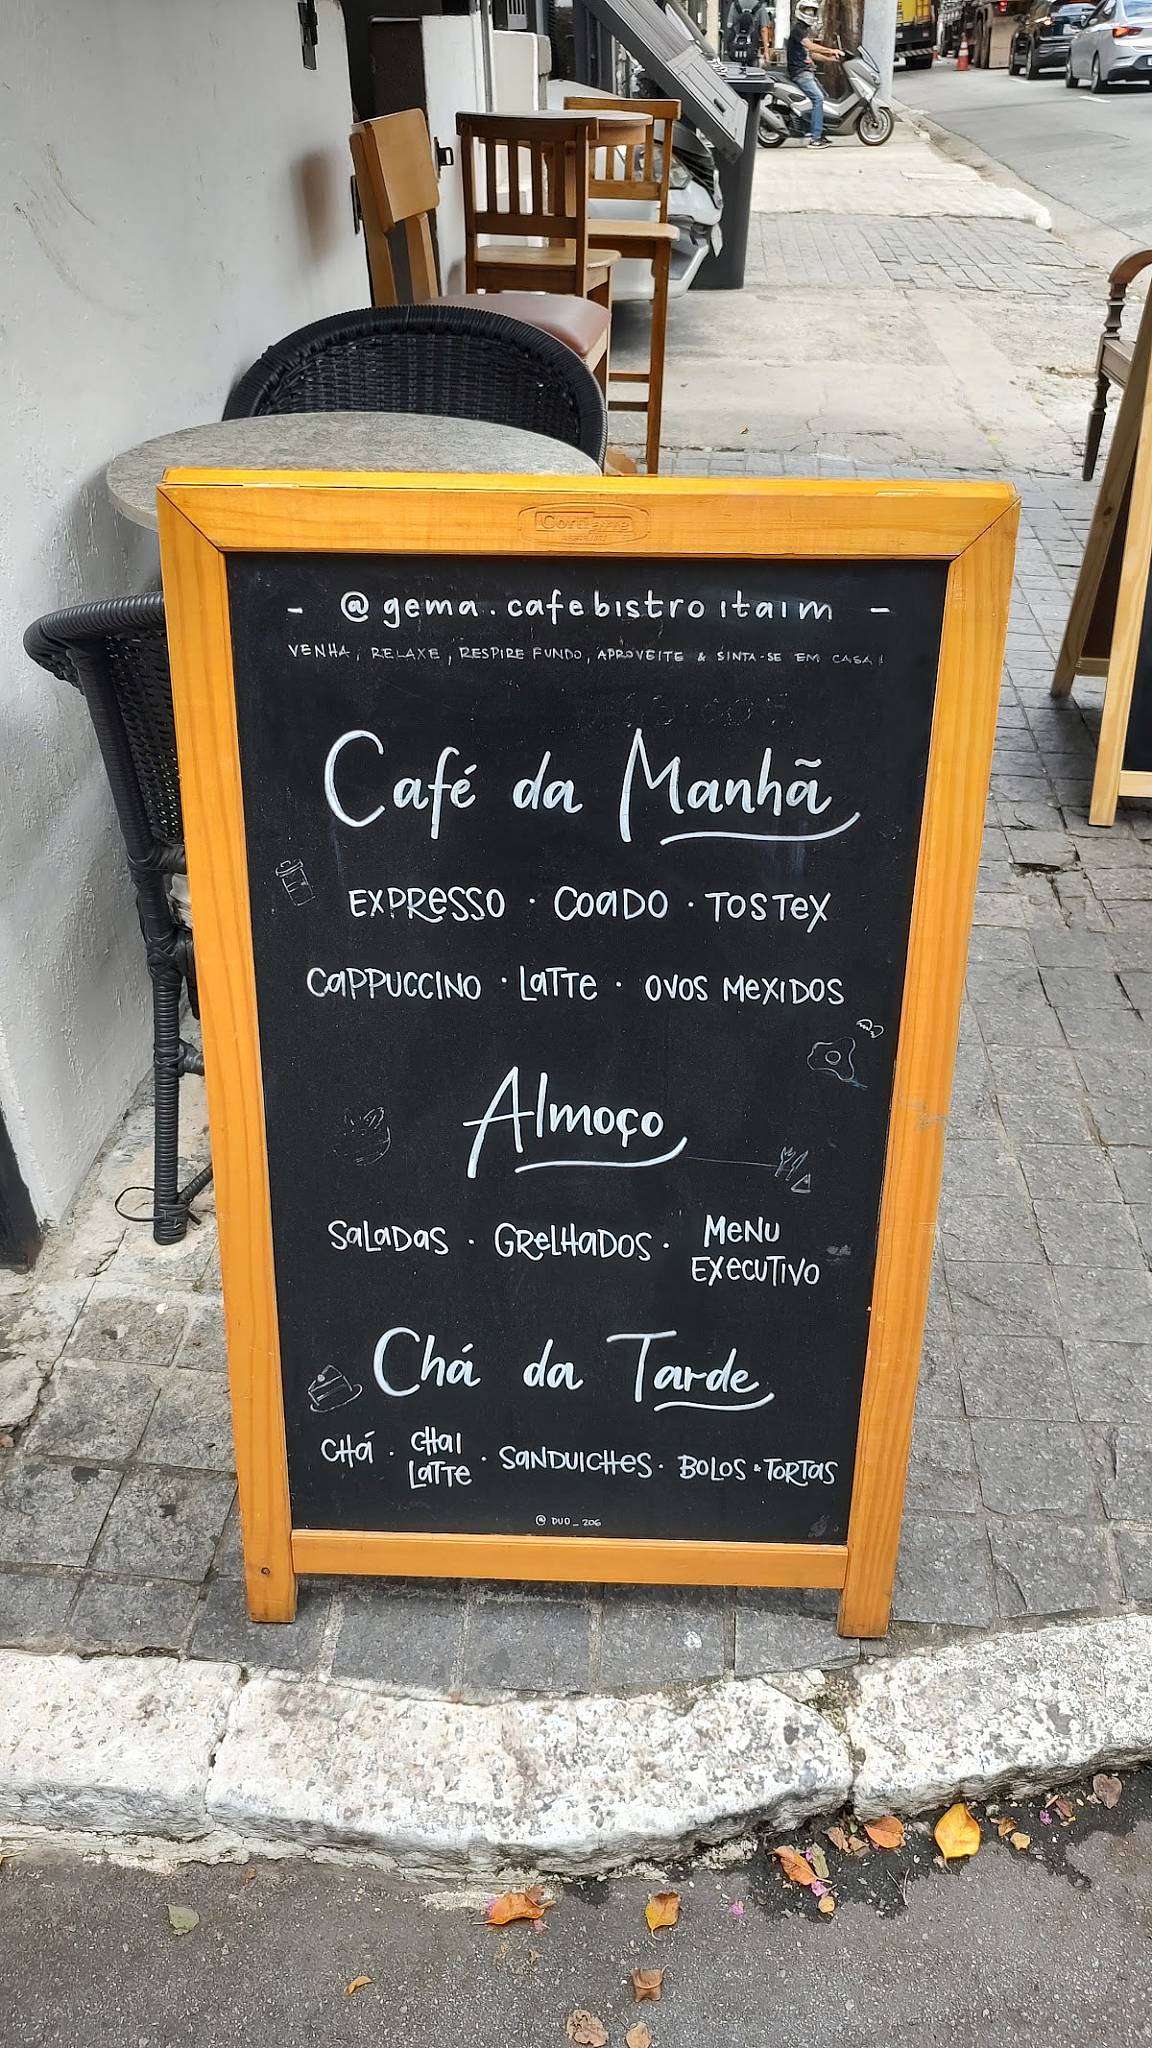 - @gema.cafebistroitaim -
VENHA, RELAXE, RESPIRE FUNDO, APROVEITE & SINTA-SE EM CASA!
Café da Manhã
EXPRESSO · COADO · TOSTEX
CAPPUCCINO · LATTE · OVOS MEXIDOS
Almoço
SALADAS · GRELHADOS · MENU
EXECUTIVO
Chá da Tarde
CHÁ · CHAI LATTE · SANDUICHES · BOLOS & TORTAS
@DUO_206